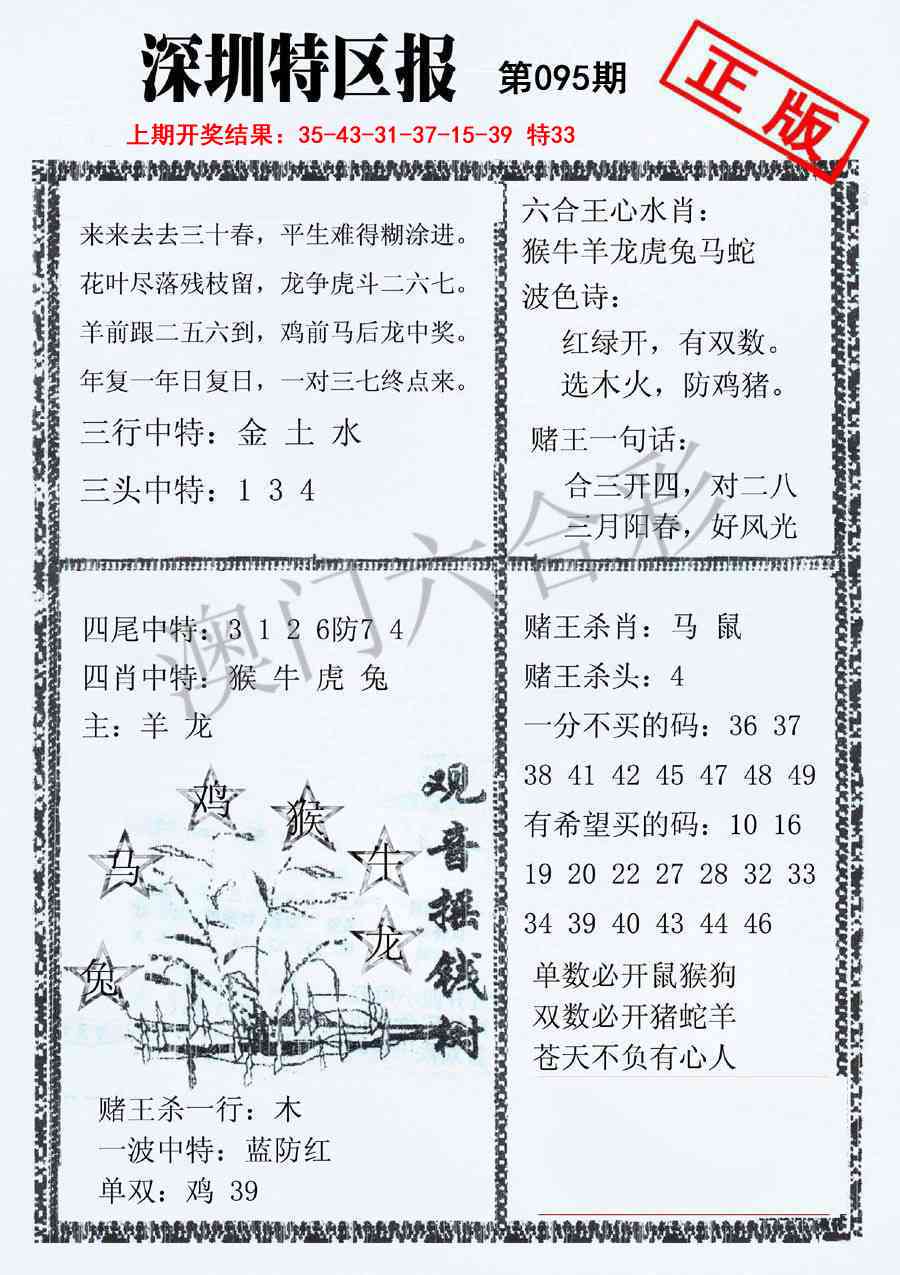 深圳特区报 第095期
正版
上期开奖结果：35-43-31-37-15-39 特33
来来去去三十春，平生难得糊涂进。
花叶尽落残枝留，龙争虎斗二六七。
羊前跟二五六到，鸡前马后龙中奖。
年复一年日复日，一对三七终点来。
三行中特：金 土 水
三头中特：1 3 4
六合王心水肖：
猴牛羊龙虎兔马蛇
波色诗：
红绿开，有双数。
选木火，防鸡猪。
赌王一句话：
合三开四，对二八
三月阳春，好风光
澳门六合彩
四尾中特：3 1 2 6防7 4
四肖中特：猴 牛 虎 兔
主：羊 龙
鸡
猴
马
牛
龙
兔
观音摇钱树
赌王杀一行：木
一波中特：蓝防红
单双：鸡 39
赌王杀肖：马 鼠
赌王杀头：4
一分不买的码：36 37
38 41 42 45 47 48 49
有希望买的码：10 16
19 20 22 27 28 32 33
34 39 40 43 44 46
单数必开鼠猴狗
双数必开猪蛇羊
苍天不负有心人